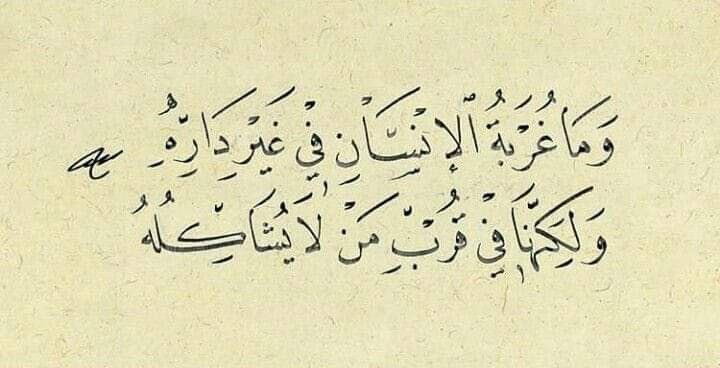 وَمَا غُرْبَةُ ٱلْإِنْسَانِ فِي غَيْرِ دَارِهِ
وَلَكِنَّهَا فِي قُرْبِ مَنْ لَا يُشَاكِلُهُ